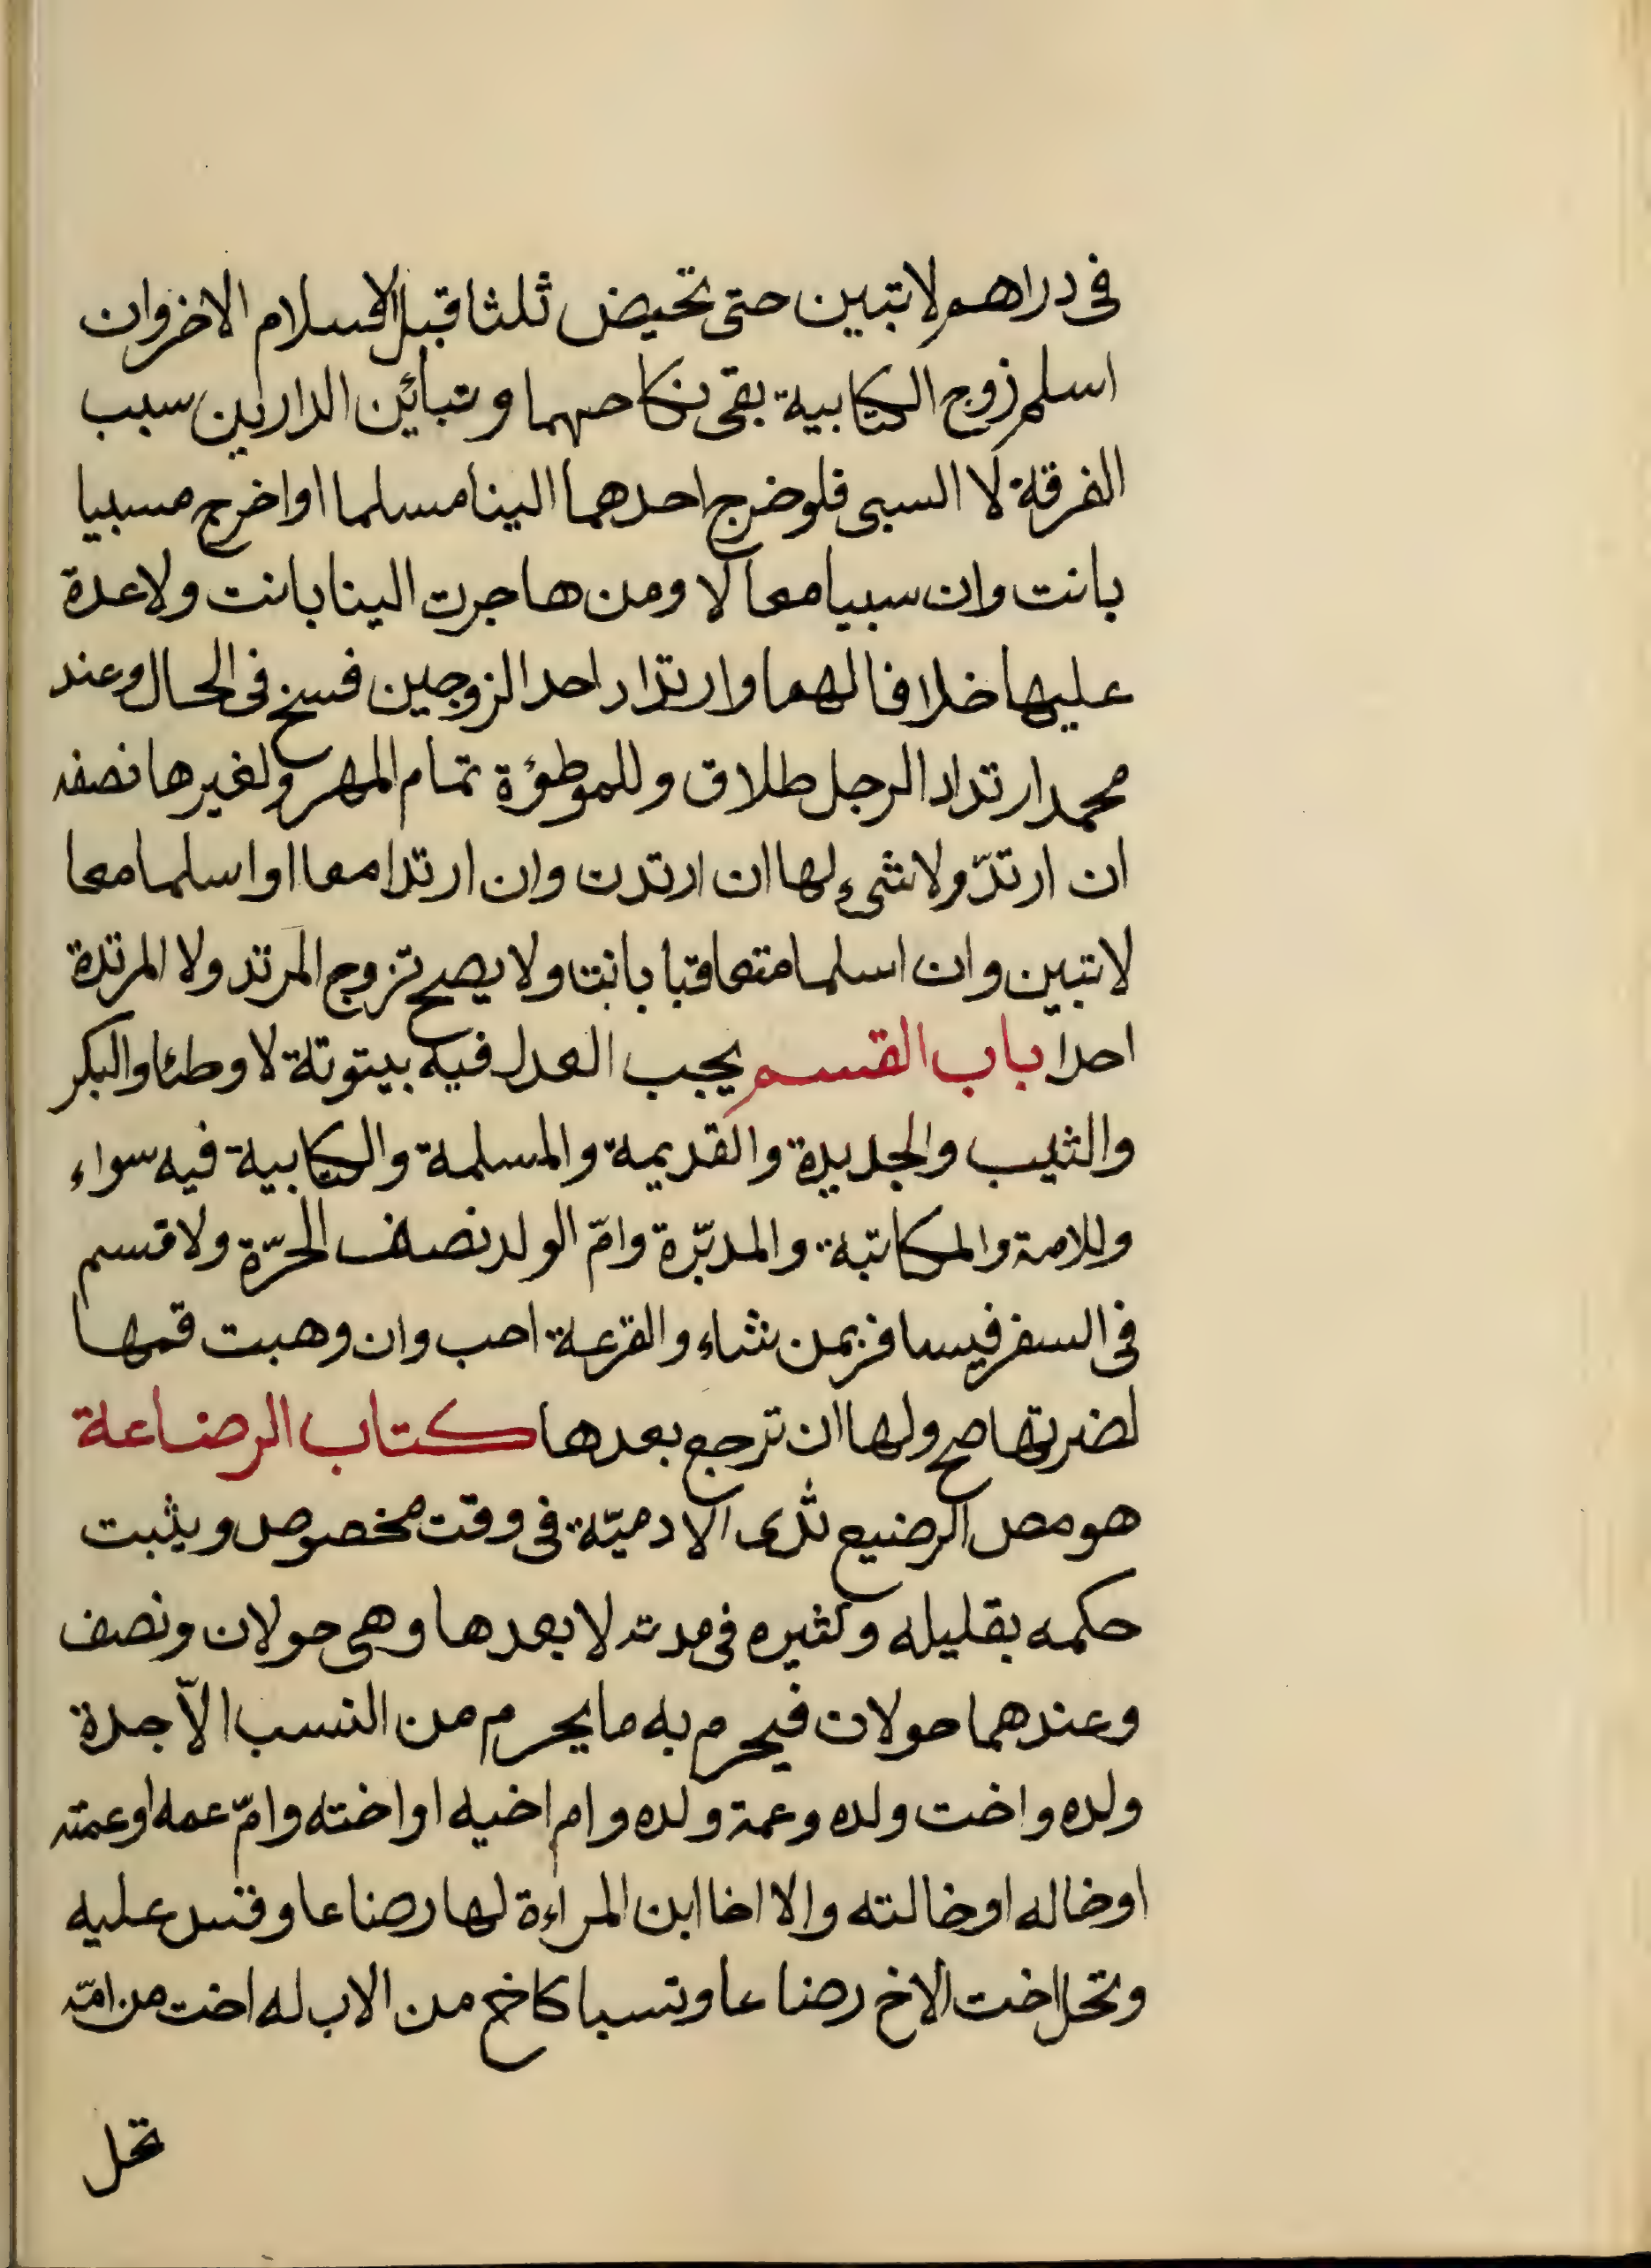 فى دراهم لا تبين حتى تحيض ثلثا قبل الاسلام الاخر وان
اسلم زوج الكتابية بقى نكاحهما وتبائن الدارين سبب
الفرقة لا السبى فلو خرج احدهما الينا مسلما او اخرج مسبيا
بانت وان سبيا معا لا ومن هاجرت الينا بانت ولا عدة
عليها خلافا لهما وارتداد احد الزوجين فسخ فى الحال وعند
محمد ارتداد الرجل طلاق وللموطؤة تمام المهر ولغيرها نصفه
ان ارتدّ ولا شىء لها ان ارتدت وان ارتدا معا او اسلما معا
لا تبين وان اسلما متعاقبا بانت ولا يصح تزوج المرتد ولا المرتدة
احدا باب القسم يجب العدل فيه بيتوتة لا وطئا والبكر
والثيب والجديدة والقديمة والمسلمة والكتابية فيه سواء
وللامة والمكاتبة والمدبّرة وامّ الولد نصف الحرّة ولا قسم
فى السفر فيسافر بمن شاء والقرعة احب وان وهبت قمها
لضرتها صح ولها ان ترجع بعدها كتاب الرضاعة
هو مص الرضيع ثدى الادميّة فى وقت مخصوص ويثبت
حكمه بقليله وكثيره فى مدته لا بعدها وهى حولان ونصف
وعندهما حولان فيحرم به ما يحرم من النسب الّا جدة
ولده واخت ولده وعمة ولده وام اخيه او اخته وامّ عمه او عمته
او خاله او خالته والا اخا ابن المراءة لها رضاعا وقس عليه
وتحل اخت الاخ رضاعا ونسبا كاخ من الاب له اخت من امّه
تحل